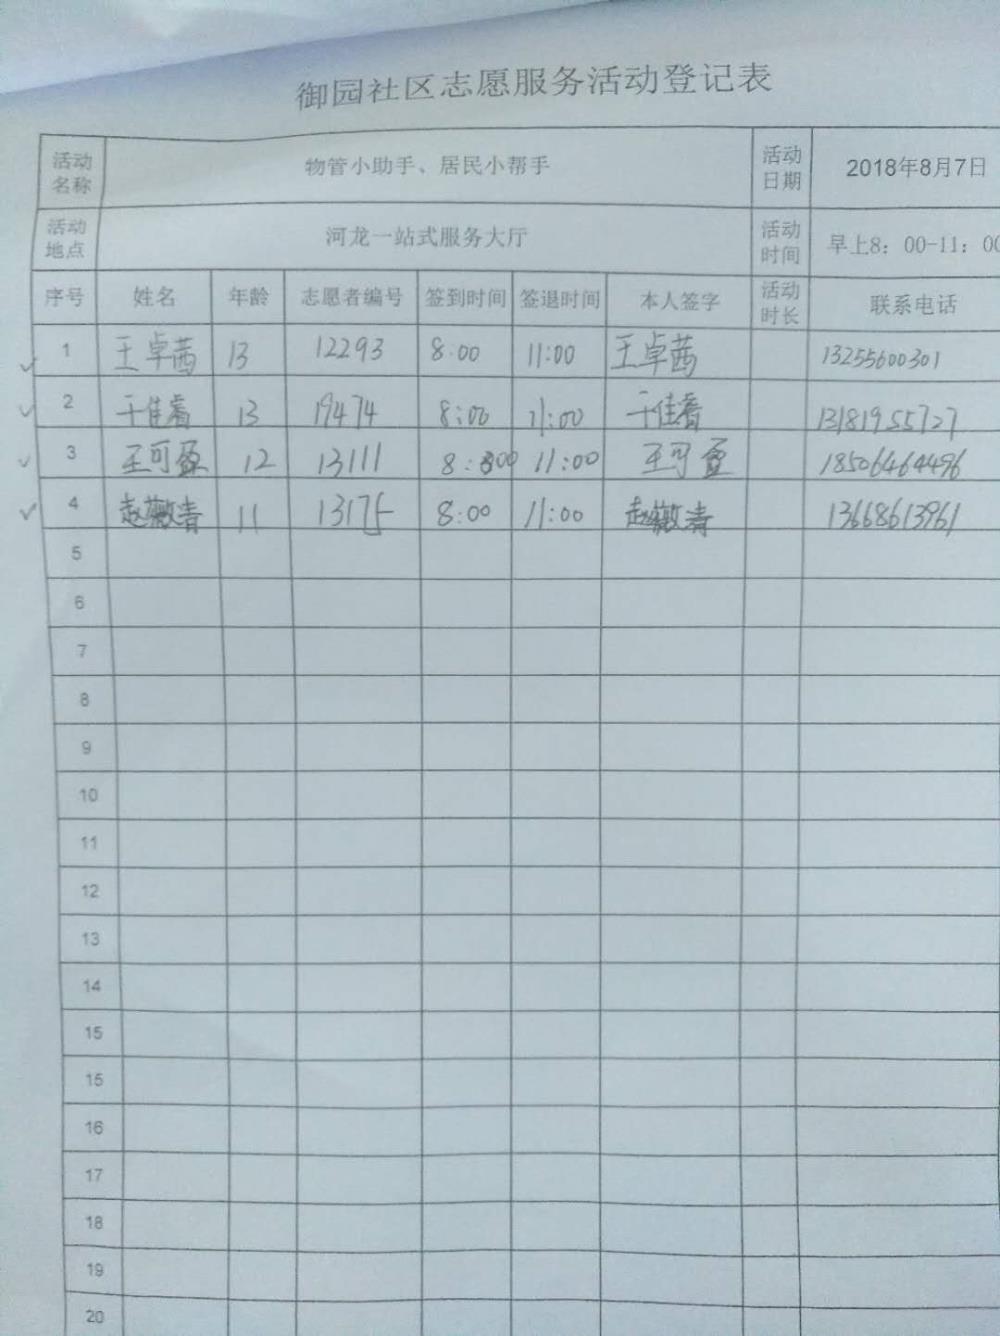 御园社区志愿服务活动登记表
活动名称 物管小助手、居民小帮手 活动日期 2018年8月7日
活动地点 河龙一站式服务大厅 活动时间 早上8：00-11：00
序号 姓名 年龄 志愿者编号 签到时间 签退时间 本人签字 活动时长 联系电话
1 王卓茜 13 12293 8:00 11:00 王卓茜 13255600301
2 于佳睿 13 19474 8:00 11:00 于佳睿 13181955727
3 王可盈 12 13111 8:00 11:00 王可盈 18506464496
4 赵薇清 11 13175 8:00 11:00 赵薇清 13668613961
5
6
7
8
9
10
11
12
13
14
15
15
16
17
18
19
20